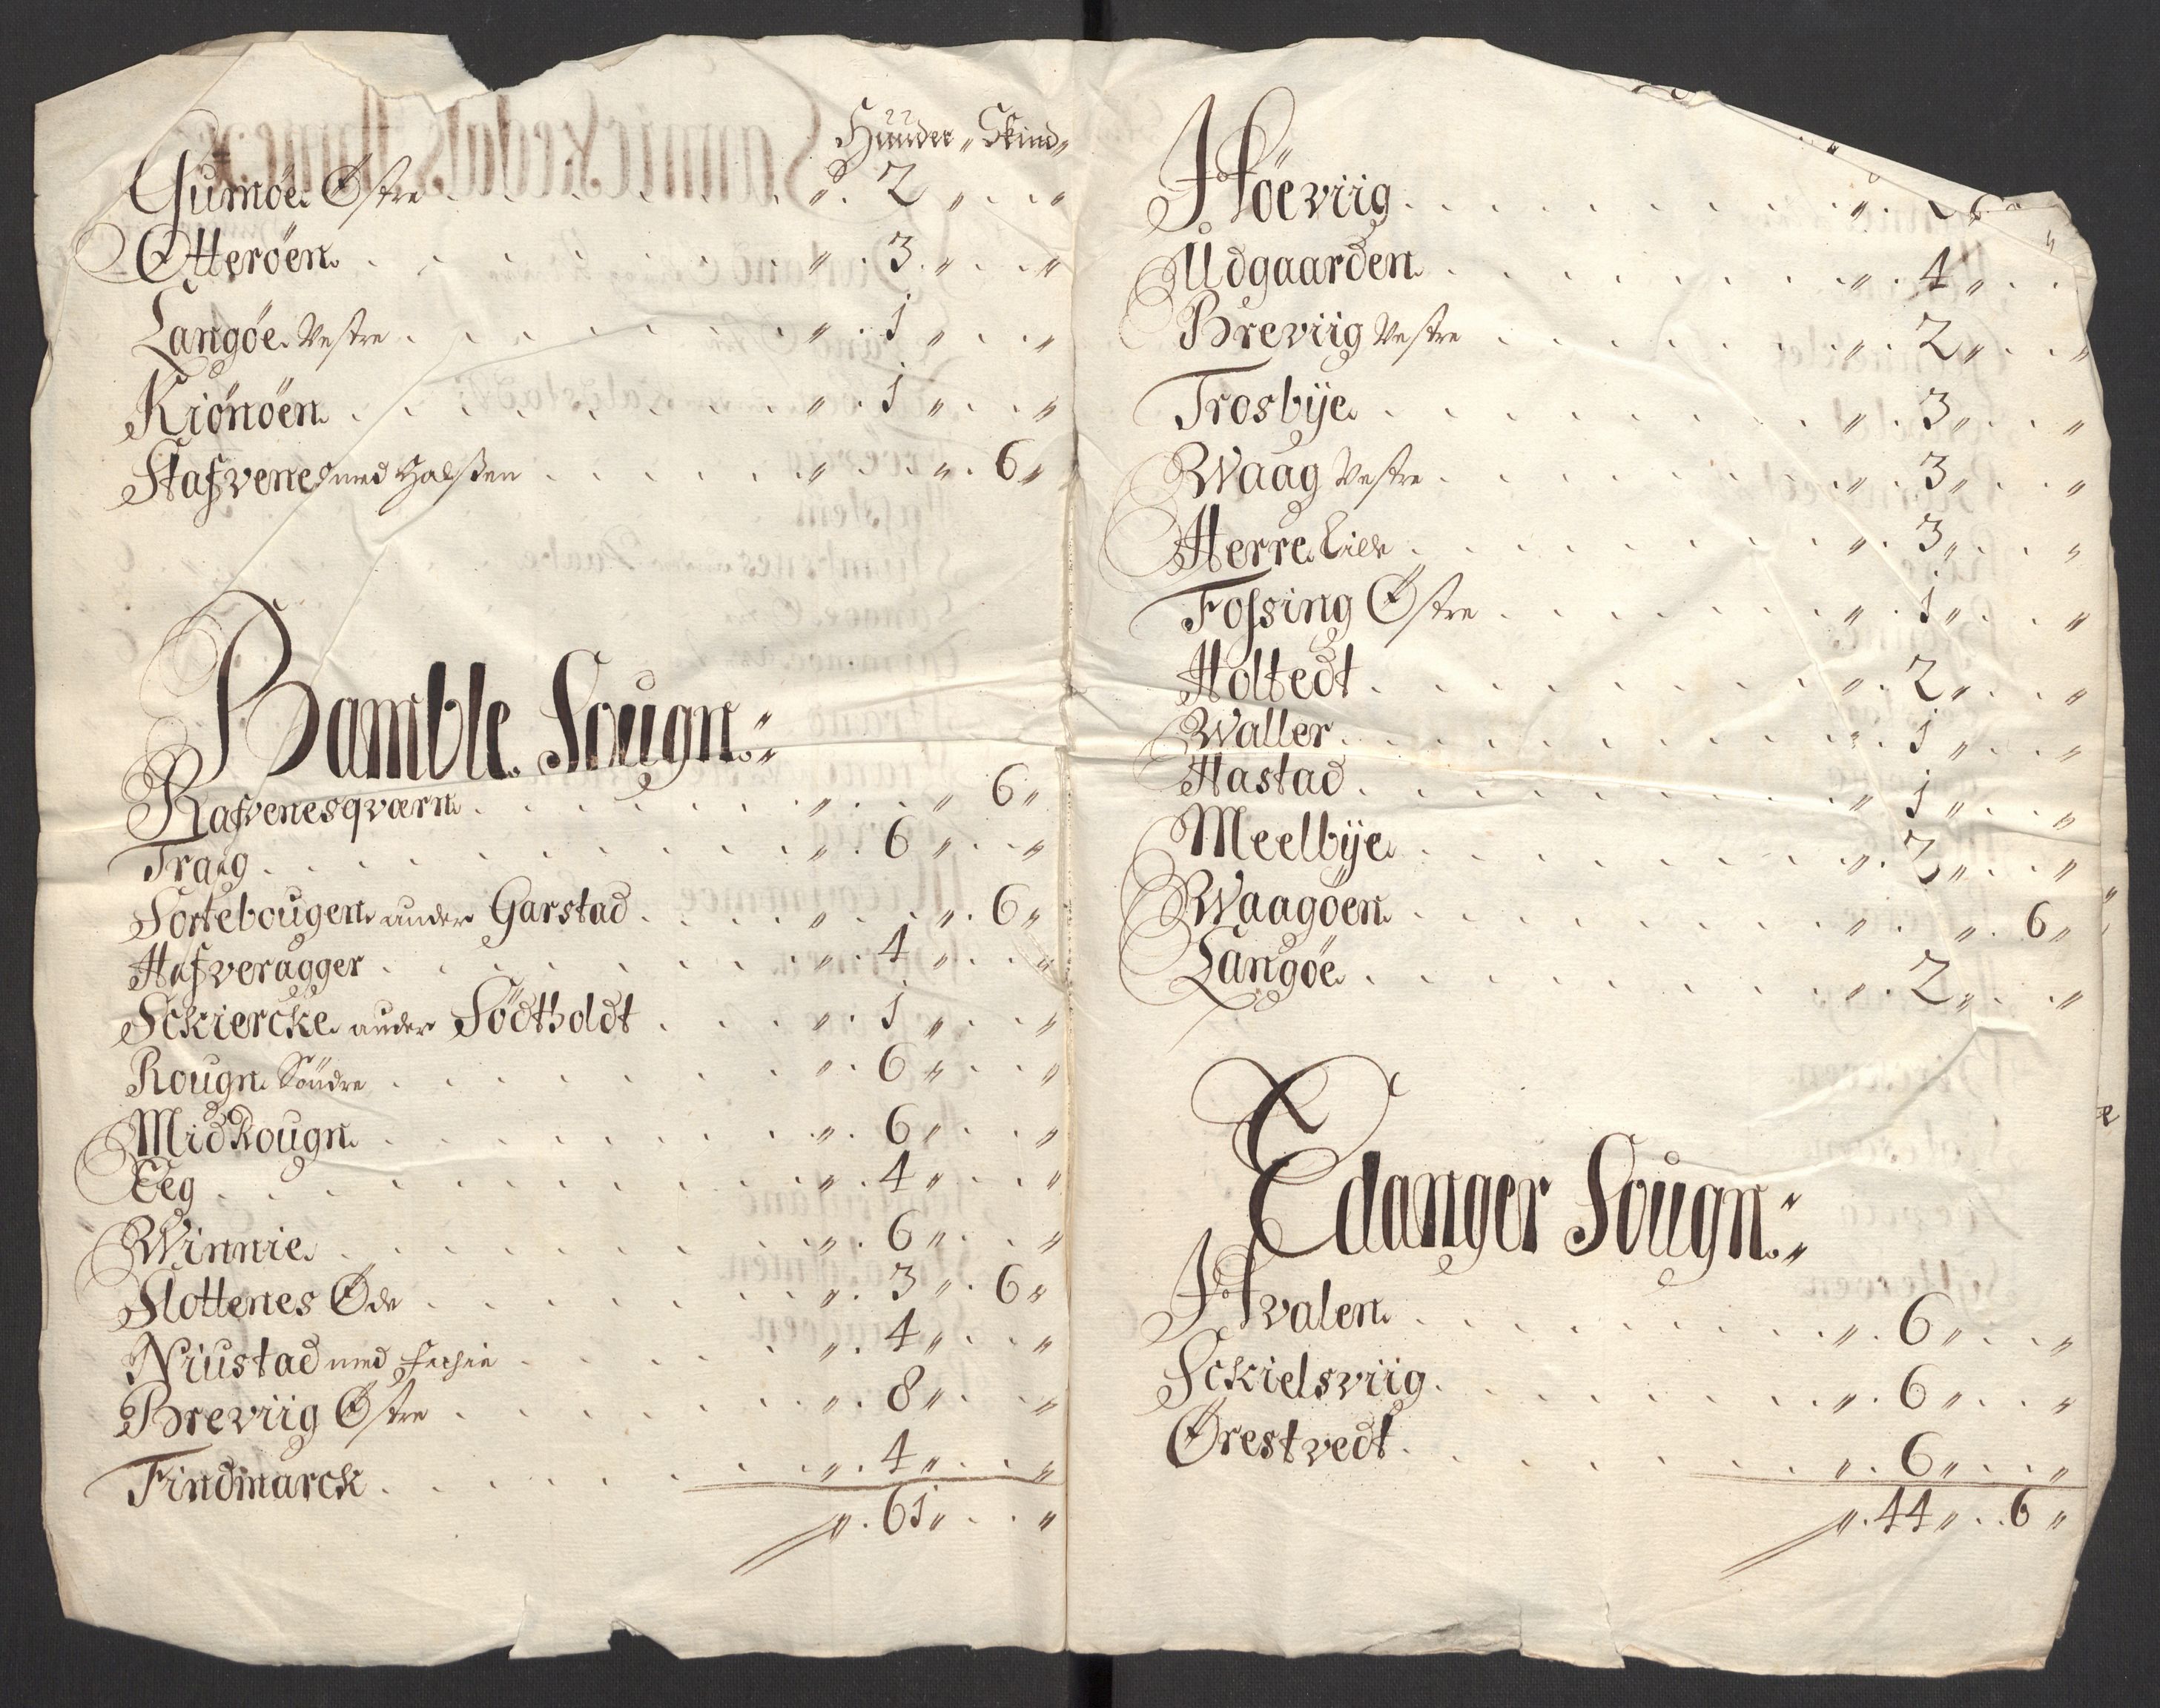 Huuder „ Skind „
Gumøe Østre . . . „ . 2 „ . . „
Otterøen . . . „ . 3 „ . . „
Langøe Vestre . . . „ . 1 „ . . „
Kiönöen . . . „ . 1 „ . . „
Stafvenes med Halsen . . . „ . . „ . 6 „
Bamble Sougn:
Rafvenesqværn . . . „ . . „ 6 „
Traag . . . „ . 6 „ . . „
Sortebougen under Garstad . . . „ . . „ . 6 „
Hafveragger . . . „ . 4 „ . . „
Sckiercke under Södtholdt . . . „ . 1 „ . . „
Rougn Söndre . . . „ . 6 „ . . „
Mid Rougn . . . „ . 6 „ . . „
Eeg . . . „ . 4 „ . . „
Winnie . . . „ . 6 „ . . „
Slottenes Øde . . . „ . 3 „ . 6 „
Niustad med . . . „ . 4 „ . . „
Breviig Østre . . . „ . 8 „ . . „
Findmarck . . . „ . 4 „ . . „
„ . 61 „ . . „
Höeviig . . . „ .
Udgaarden . . . „ . 4 „ . .
Breviig Vestre . . . „ . 2 „ . . „
Trosbÿe . . . „ . 3 „ . . „
Waag Vestre . . . „ . 3 „ . . „
Herre Eide . . . „ . 3 „ . . „
Fossing Østre . . . „ . 1 „ . . „
Holtedt . . . „ . 2 „ . . „
Waller . . . „ . 1 „ . . „
Hastad . . . „ . 1 „ . . „
Meelbÿe . . . „ . 2 „ . . „
Waagöen . . . „ . . „ . 6 „
Langøe . . . „ . 2 „ . . „
Edanger Sougn:
Hvalen . . . „ . 6 „ . . „
Sckielsviig . . . „ . 6 „ . . „
Ørestvedt . . . „ . 6 „ . . „
„ . 44 „ . . 6 „